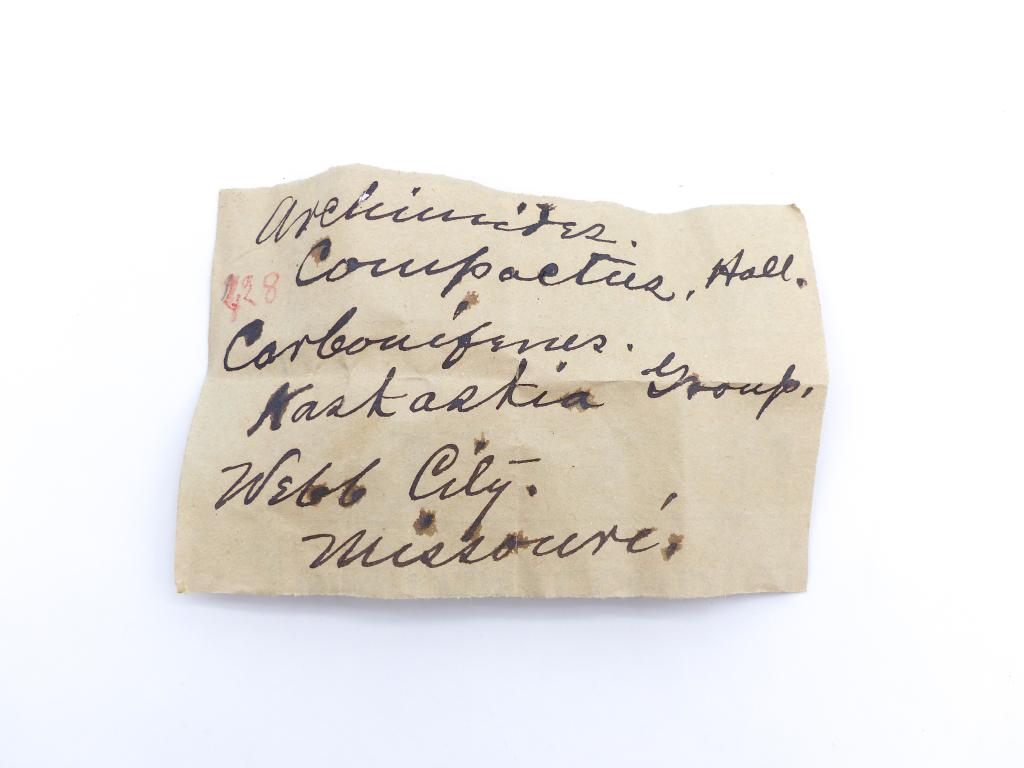 Archimides.
Compactus, Hall.
428
Carboniferus.
Kaskaskia Group.
Webb City.
Missouri.